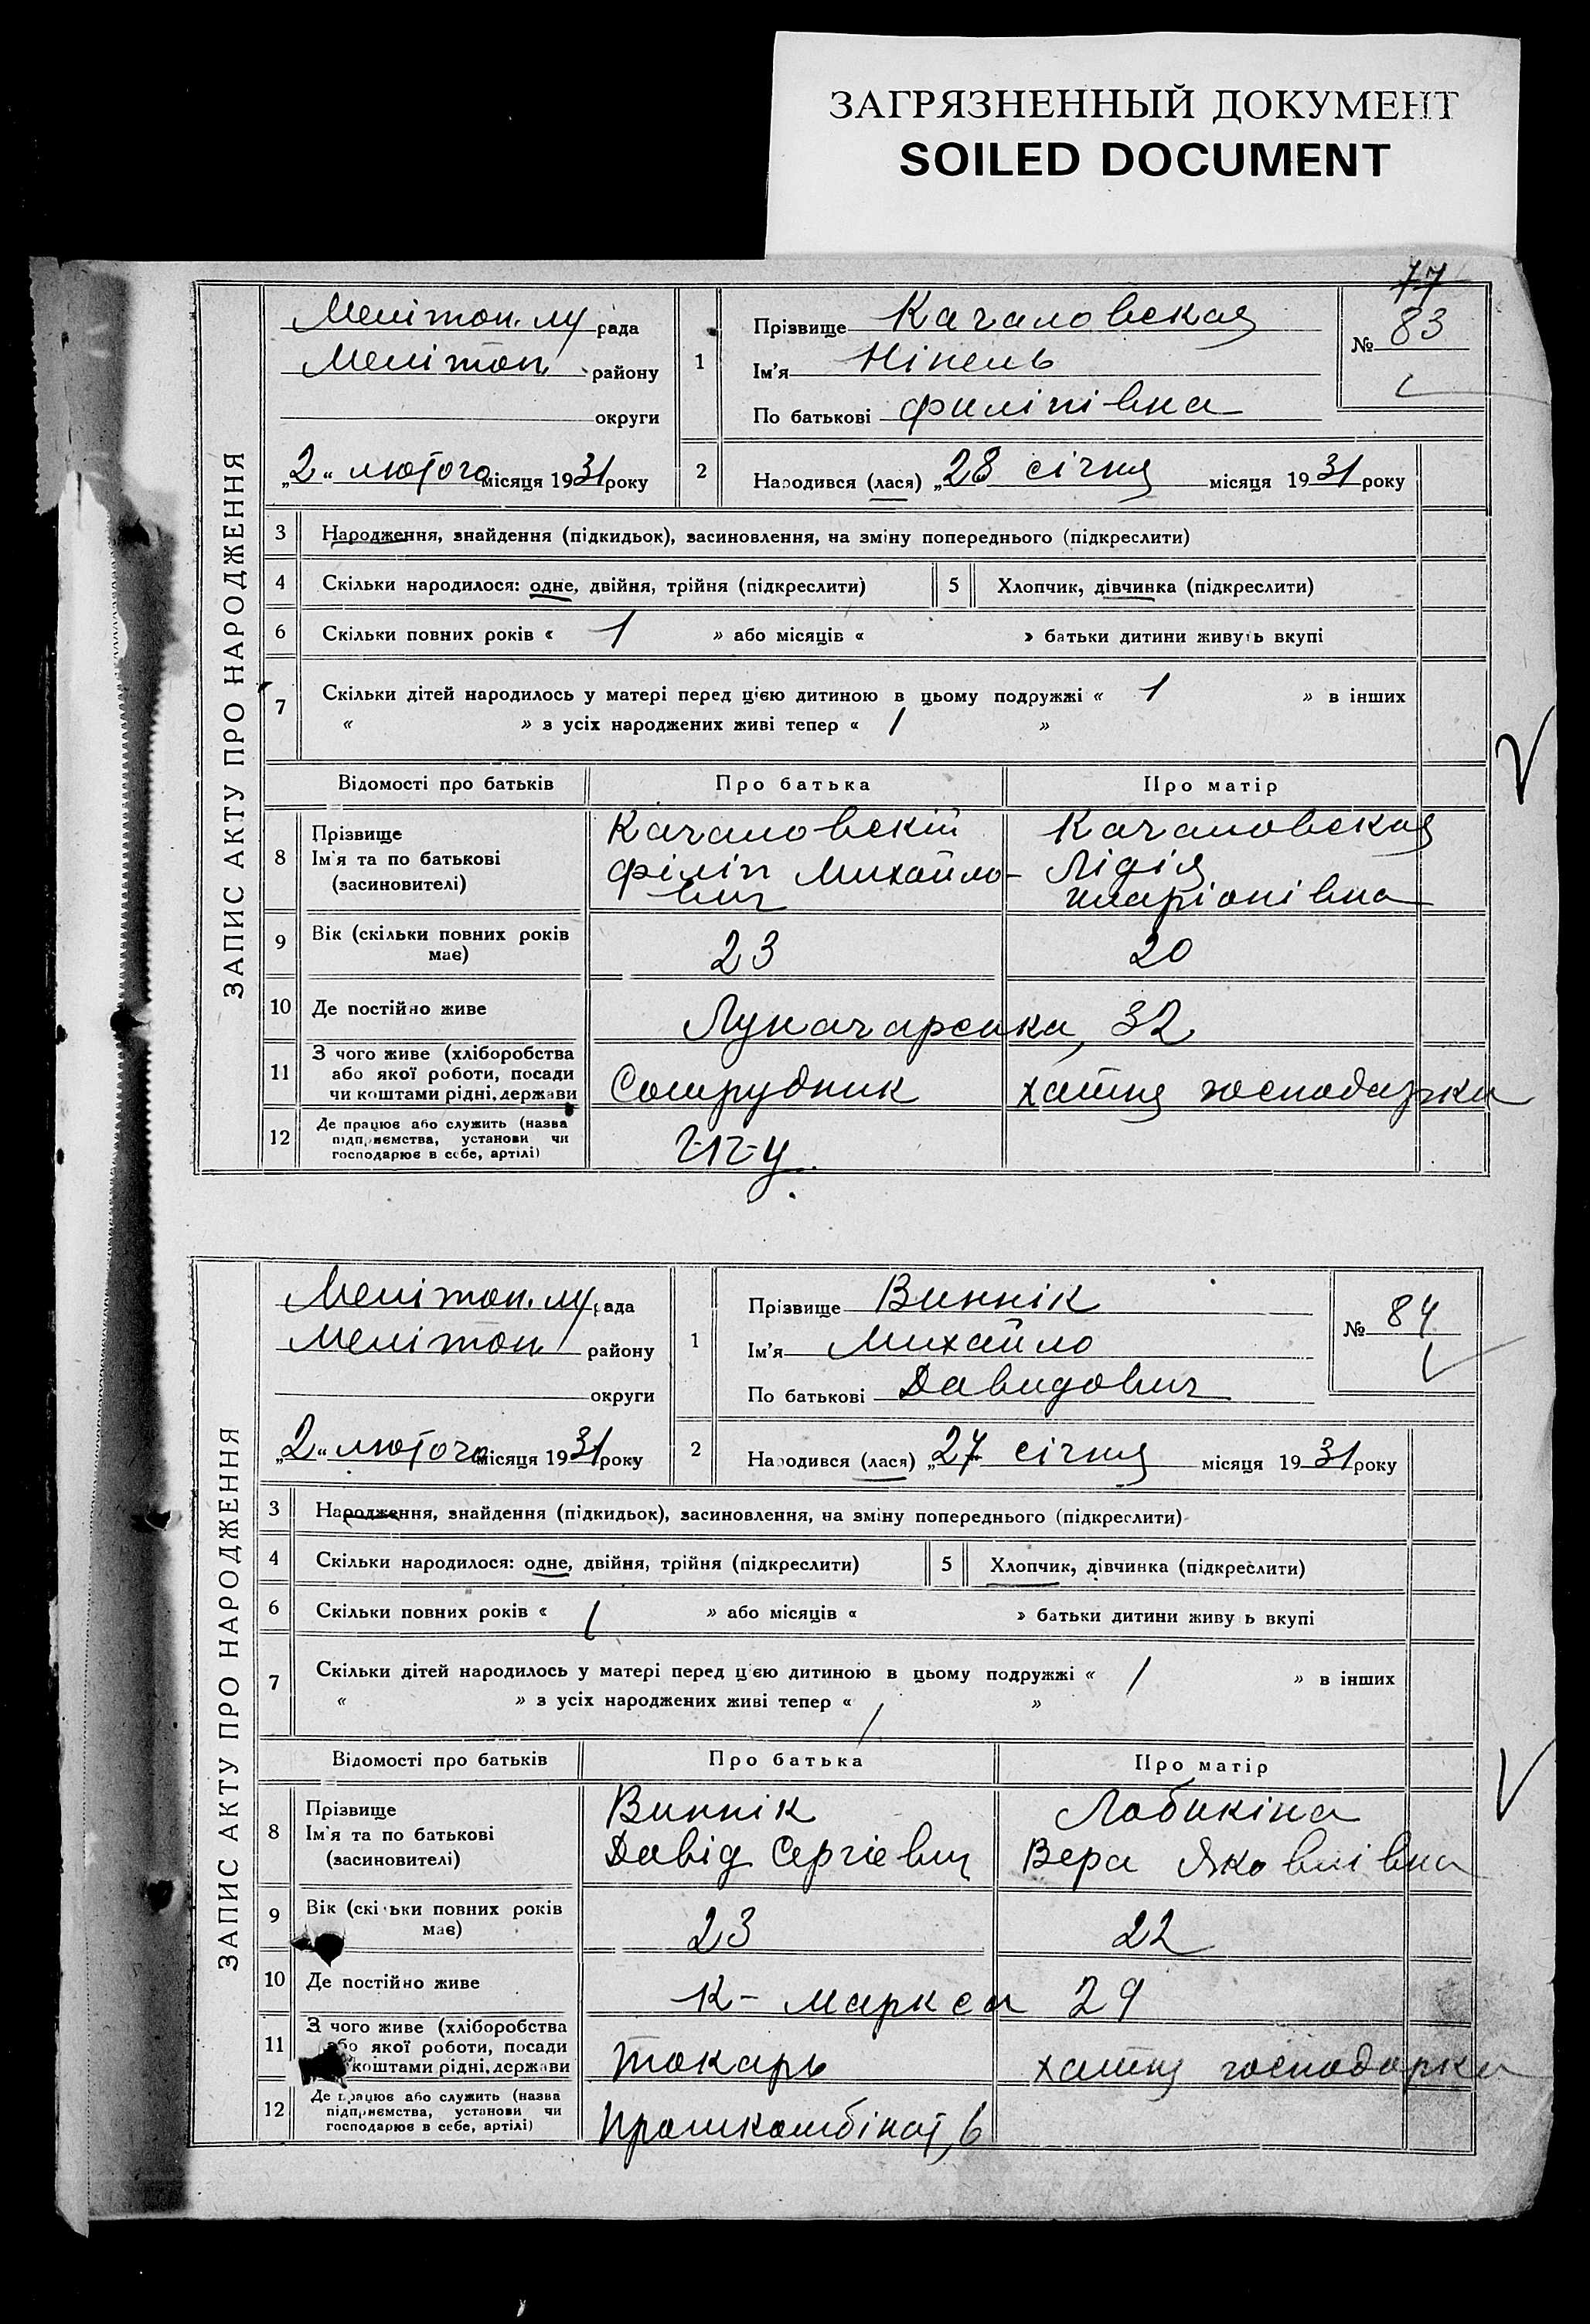 ЗАГРЯЗНЕННЫЙ ДОКУМЕНТ
SOILED DOCUMENT
77
ЗАПИС АКТУ ПРО НАРОДЖЕННЯ
Мелітоп. м/ рада
Мелітоп. району
округи
„2“ лютого місяця 1931 року
1
Прізвище Качаловская
Ім'я Нінель
По батькові Филіпівна
№ 83
2
Народився (лася) „28 січня місяця 1931 року
3 Народження, знайдення (підкидьок), засиновлення, на зміну попереднього (підкреслити)
4 Скільки народилося: одне, двійня, трійня (підкреслити) 5 Хлопчик, дівчинка (підкреслити)
6 Скільки повних років « 1 » або місяців « » батьки дитини живуть вкупі
7 Скільки дітей народилось у матері перед цією дитиною в цьому подружжі « 1 » в інших
« » з усіх народжених живі тепер « 1 »
Відомості про батьків Про батька Про матір
8 Прізвище
Ім'я та по батькові
(засиновителі)
Качаловскій
Філіп Михайло-
вич
Качаловская
Лідія
Иларіонівна
9 Вік (скільки повних років
має)
23 20
10 Де постійно живе Луначарська, 32
11 З чого живе (хліборобства
або якої роботи, посади
чи коштами рідні, держави
Сотрудник хатня господарка
12 Де працює або служить (назва
підприємства, установи чи
господарює в себе, артілі)
Г-П-У.
ЗАПИС АКТУ ПРО НАРОДЖЕННЯ
Мелітоп. м/ рада
Мелітоп. району
округи
„2“ лютого місяця 1931 року
1
Прізвище Виннік
Ім'я Михайло
По батькові Давидович
№ 84
2
Народився (лася) „27 січня місяця 1931 року
3 Народження, знайдення (підкидьок), засиновлення, на зміну попереднього (підкреслити)
4 Скільки народилося: одне, двійня, трійня (підкреслити) 5 Хлопчик, дівчинка (підкреслити)
6 Скільки повних років « 1 » або місяців « » батьки дитини живу ь вкупі
7 Скільки дітей народилось у матері перед цією дитиною в цьому подружжі « 1 » в інших
« » з усіх народжених живі тепер « 1 »
Відомості про батьків Про батька Про матір
8 Прізвище
Ім'я та по батькові
(засиновителі)
Виннік
Давід Сергіевич
Лобикіна
Вера Яковлівна
9 Вік (скільки повних років
має)
23 22
10 Де постійно живе К- Маркса 29
11 З чого живе (хліборобства
або якої роботи, посади
коштами рідні, держави
токарь хатня господарка
12 Де працює або служить (назва
підприємства, установи чи
господарює в себе, артілі)
Промкомбінат, 6